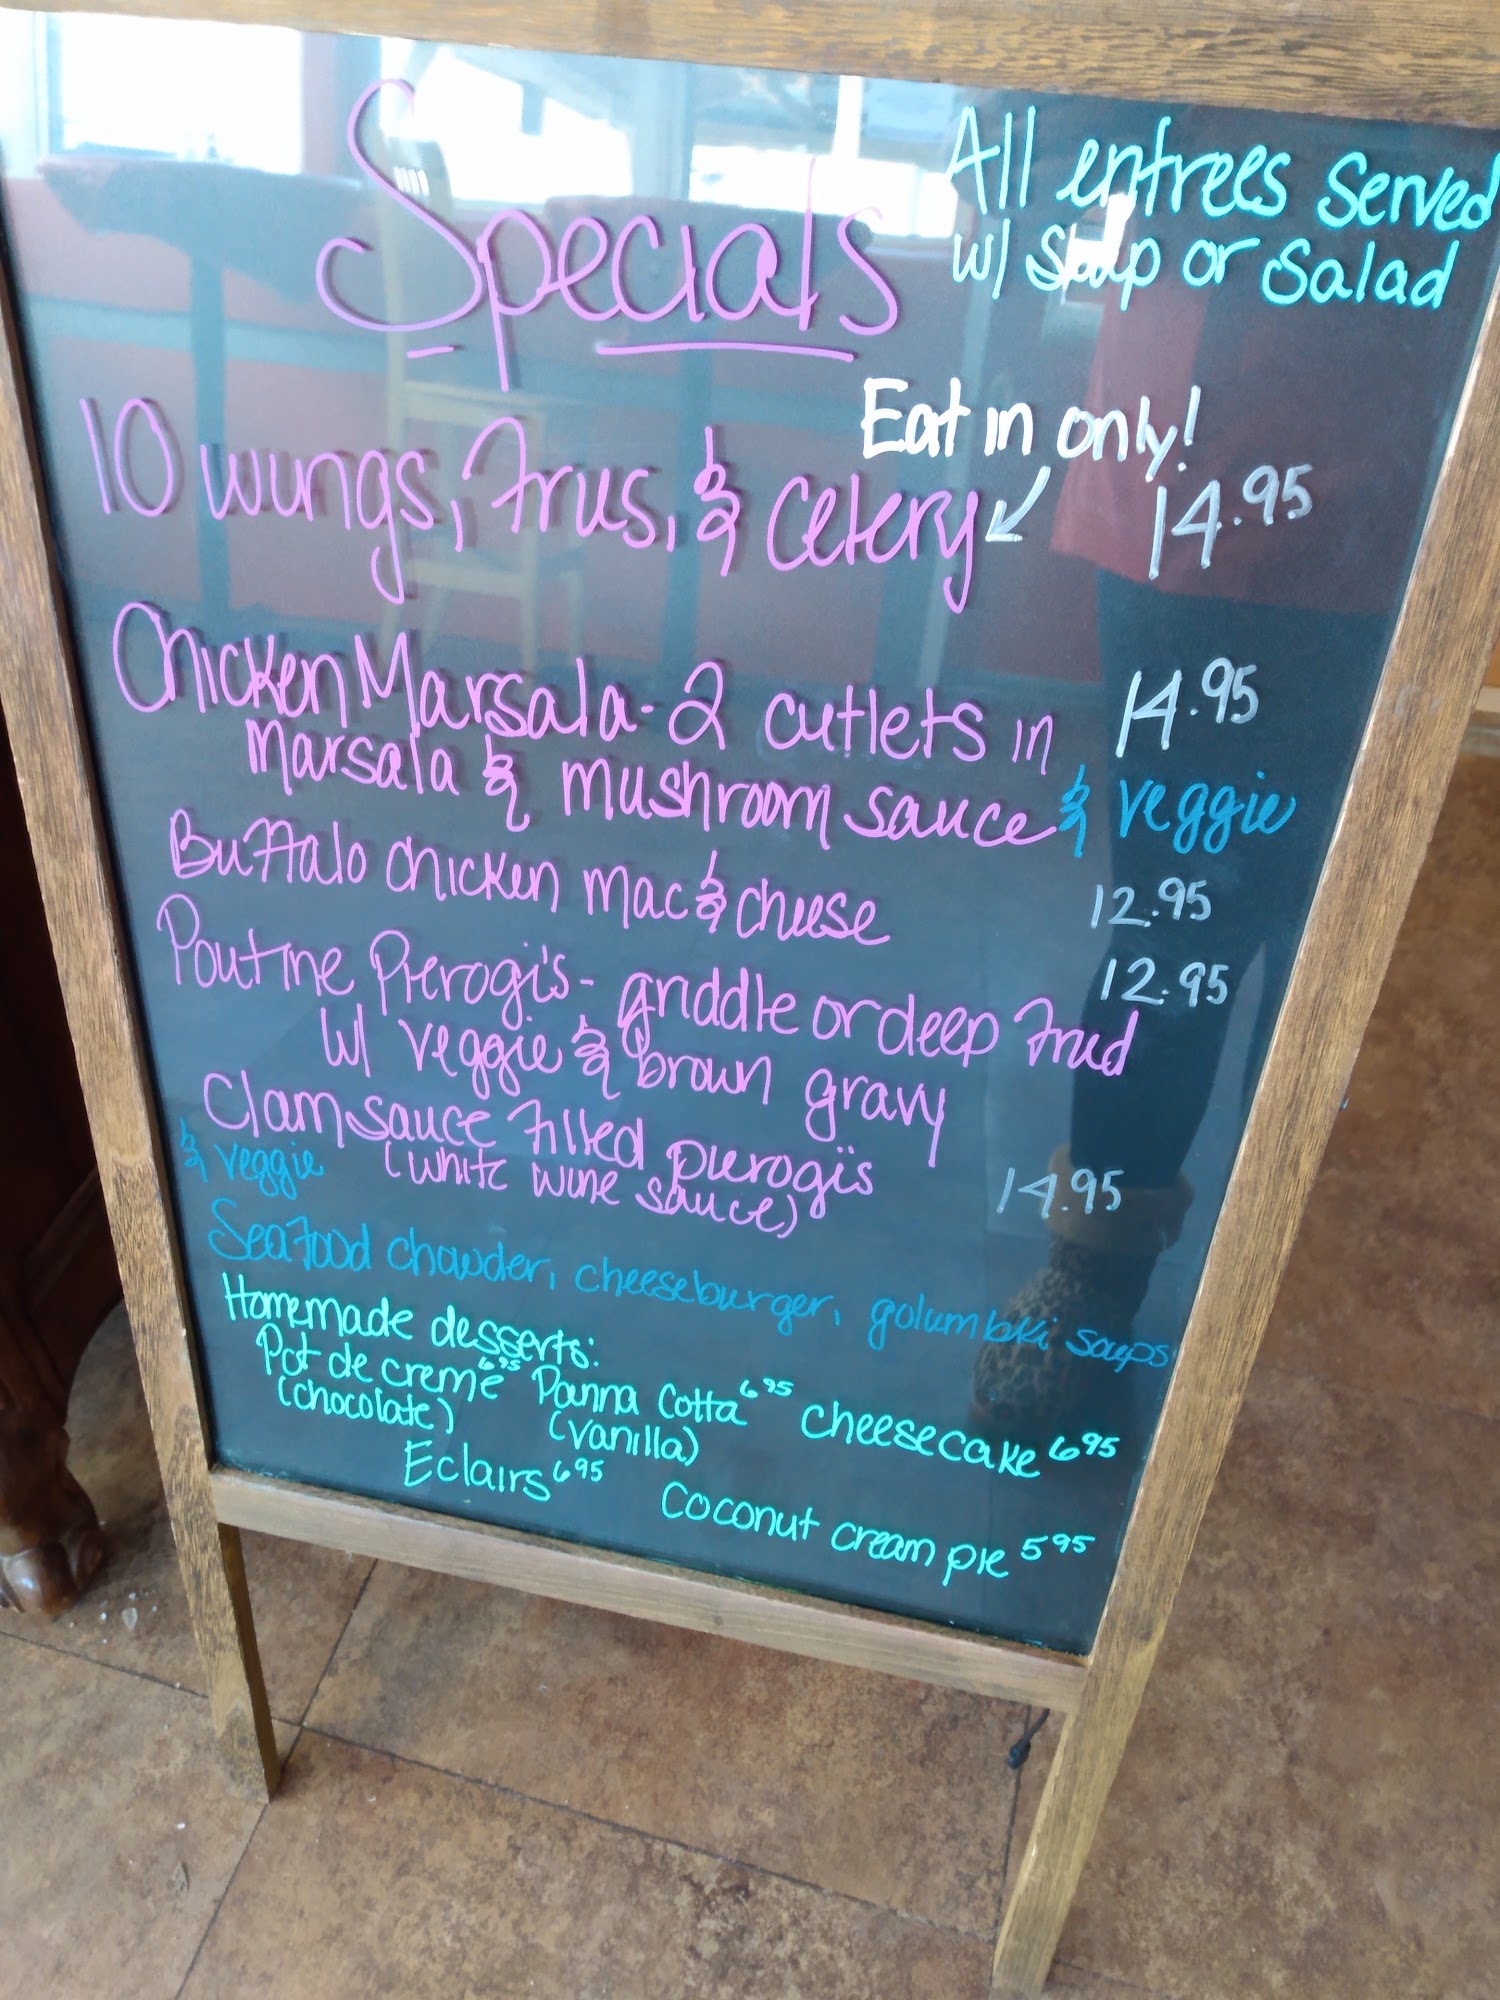 Specials
All entrees served
w/ soup or salad
Eat in only!
10 wings, fries, & celery 14.95
Chicken Marsala - 2 cutlets in 14.95
marsala & mushroom sauce & veggie
Buffalo chicken mac & cheese 12.95
Poutine Pierogi's - griddle or deep fried 12.95
w/ veggie & brown gravy
Clam sauce filled pierogi's
& veggie (white wine sauce) 14.95
Seafood chowder, cheeseburger, golumbki soups
Homemade desserts:
Pot de creme 6.95 Panna Cotta 6.95 Cheesecake 6.95
(chocolate) (vanilla)
Eclairs 6.95 Coconut cream pie 5.95